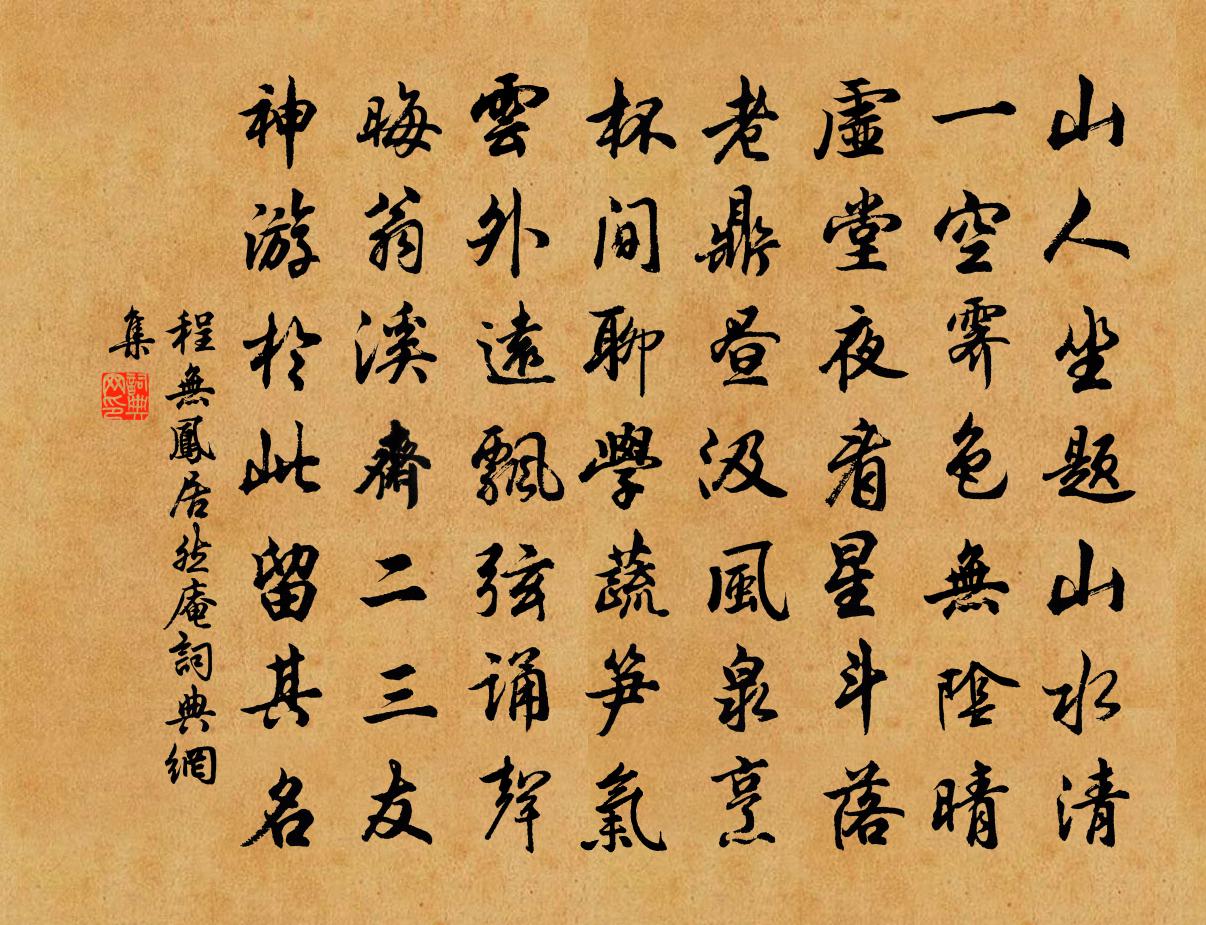 山人坐題山水清
一空霽色無陰晴
虛堂夜看星斗落
老鼎晝汲風泉烹
杯間聊學蔬笋氣
雲外遠飄弦誦聲
晦翁溪齋二三友
神游於此留其名
程無鳳居然庵詞典網
集
詞典網印